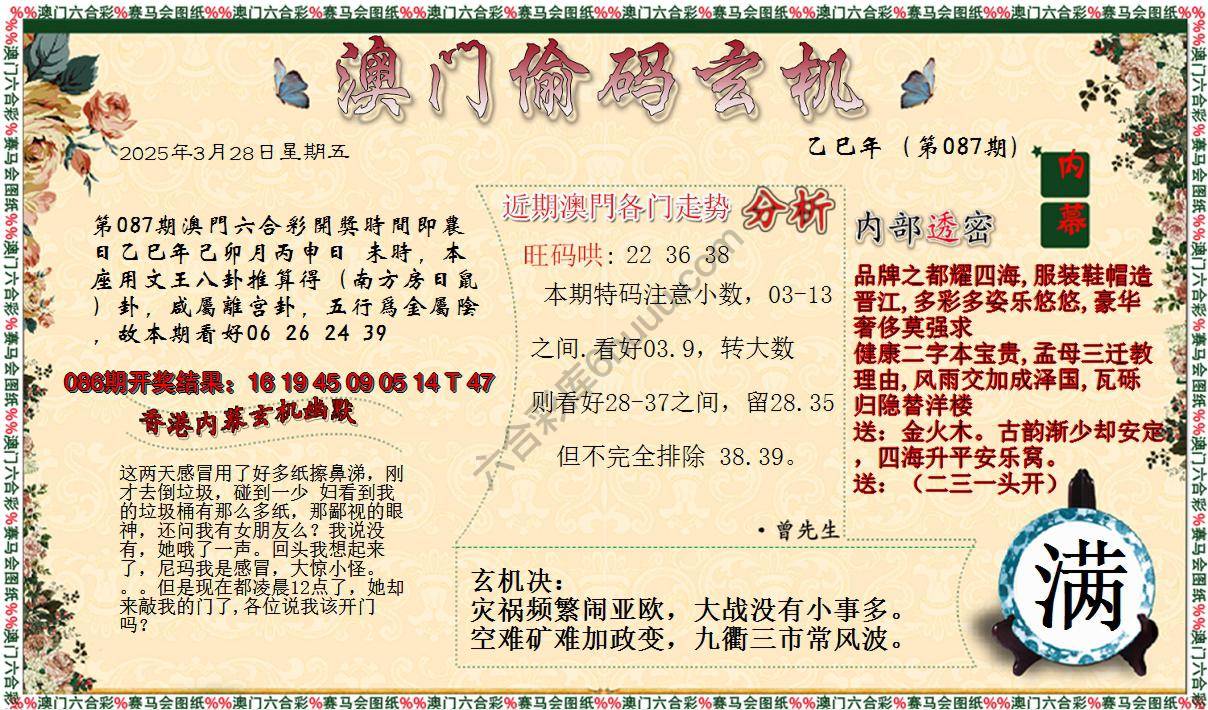 %%澳门六合彩%赛马会图纸%%澳门六合彩%赛马会图纸%%澳门六合彩%赛马会图纸%%澳门六合彩%赛马会图纸%%澳门六合彩%赛马会图纸%%澳门六合彩%赛马会图纸%%
澳门偷码玄机
2025年3月28日星期五
乙巳年（第087期）
内幕
第087期澳門六合彩開獎時間即農
日乙巳年己卯月丙申日 未時，本
座用文王八卦推算得（南方房日鼠
）卦，咸屬離宫卦，五行爲金屬陰
，故本期看好06 26 24 39
086期开奖结果：16 19 45 09 05 14 T 47
香港内幕玄机幽默
这两天感冒用了好多纸擦鼻涕，刚
才去倒垃圾，碰到一少 妇看到我
的垃圾桶有那么多纸，那鄙视的眼
神，还问我有女朋友么？我说没
有，她哦了一声。回头我想起来
了，尼玛我是感冒，大惊小怪。
。。但是现在都凌晨12点了，她却
来敲我的门了,各位说我该开门
吗？
近期澳門各门走势 分析
旺码哄: 22 36 38
本期特码注意小数，03-13
之间.看好03.9，转大数
则看好28-37之间，留28.35
但不完全排除 38.39。
·曾先生
内部透密
品牌之都耀四海,服装鞋帽造
晋江,多彩多姿乐悠悠,豪华
奢侈莫强求
健康二字本宝贵,孟母三迁教
理由,风雨交加成泽国,瓦砾
归隐替洋楼
送：金火木。古韵渐少却安定
，四海升平安乐窝。
送：（二三一头开）
玄机决：
灾祸频繁闹亚欧，大战没有小事多。
空难矿难加政变，九衢三市常风波。
满